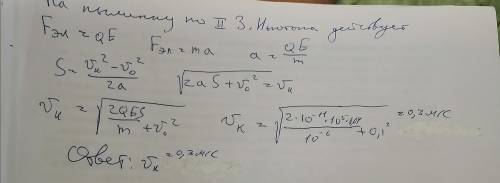 На пылинку по II З. Ньютона действует
Fэл = QE Fэл = ma a = QE/m
S = (vк² - v₀²)/2a √(2aS + v₀²) = vк
vк = √(2QES/m + v₀²) vк = √(2·10⁻¹¹·10⁵·0,04/10⁻⁶ + 0,1²) = 0,3 м/с
Ответ: vк = 0,3 м/с